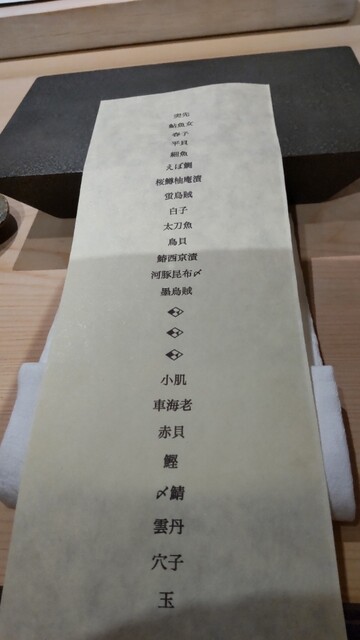 鮎魚女
春子
平貝
細魚
えぼ鯛
桜鱒柚庵漬
蛍烏賊
白子
太刀魚
鳥貝
鰆西京漬
河豚昆布〆
墨烏賊
小肌
車海老
赤貝
鰹
〆鯖
雲丹
穴子
玉